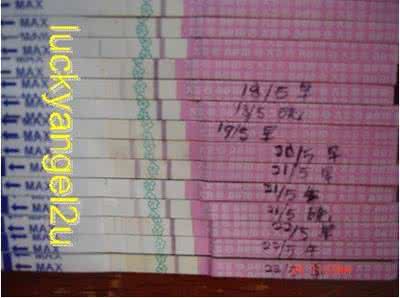 luckyangel2u
MAX
MAX
MAX
MAX
MAX
MAX 18/5 早
MAX 18/5
MAX 19/5 早
MAX 20/5 早
MAX 21/5 早
MAX 21/5
MAX 21/5
MAX 22/5 早
MAX 22/5 午
MAX 22/5